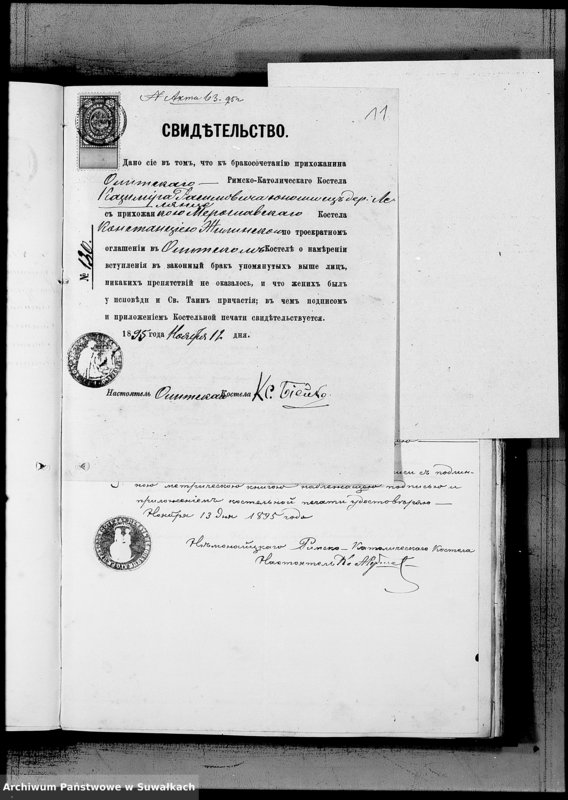 N Акта 63. 95 г.
11
СВИДѢТЕЛЬСТВО.
Дано сіе въ томъ, что къ бракосочетанію прихожанина
Олитскаго Римско-Католическаго Костела
Казиміра
съ прихожанкою Мерославскаго Костела
Констанціею по троекратномъ
оглашеніи въ Олитскомъ Костелѣ о намѣреніи
вступленія въ законный бракъ упомянутыхъ выше лицъ,
никакихъ препятствій не оказалось, и что женихъ былъ
у исповѣди и Св. Таинъ причастія; въ чемъ подписомъ
и приложеніемъ Костельной печати свидѣтельствуется.
1895 года Ноября 12 дня.
№ 130.
Настоятель Олитскаго Костела
съ подлин-
ною метрическою книгою надлежащею подписью и
приложеніемъ костельной печати удостовѣряю
Ноября 13 дня 1895 года
Нѣмонайцкаго Римско-Католическаго Костела
Настоятель Кс
Archiwum Państwowe w Suwałkach